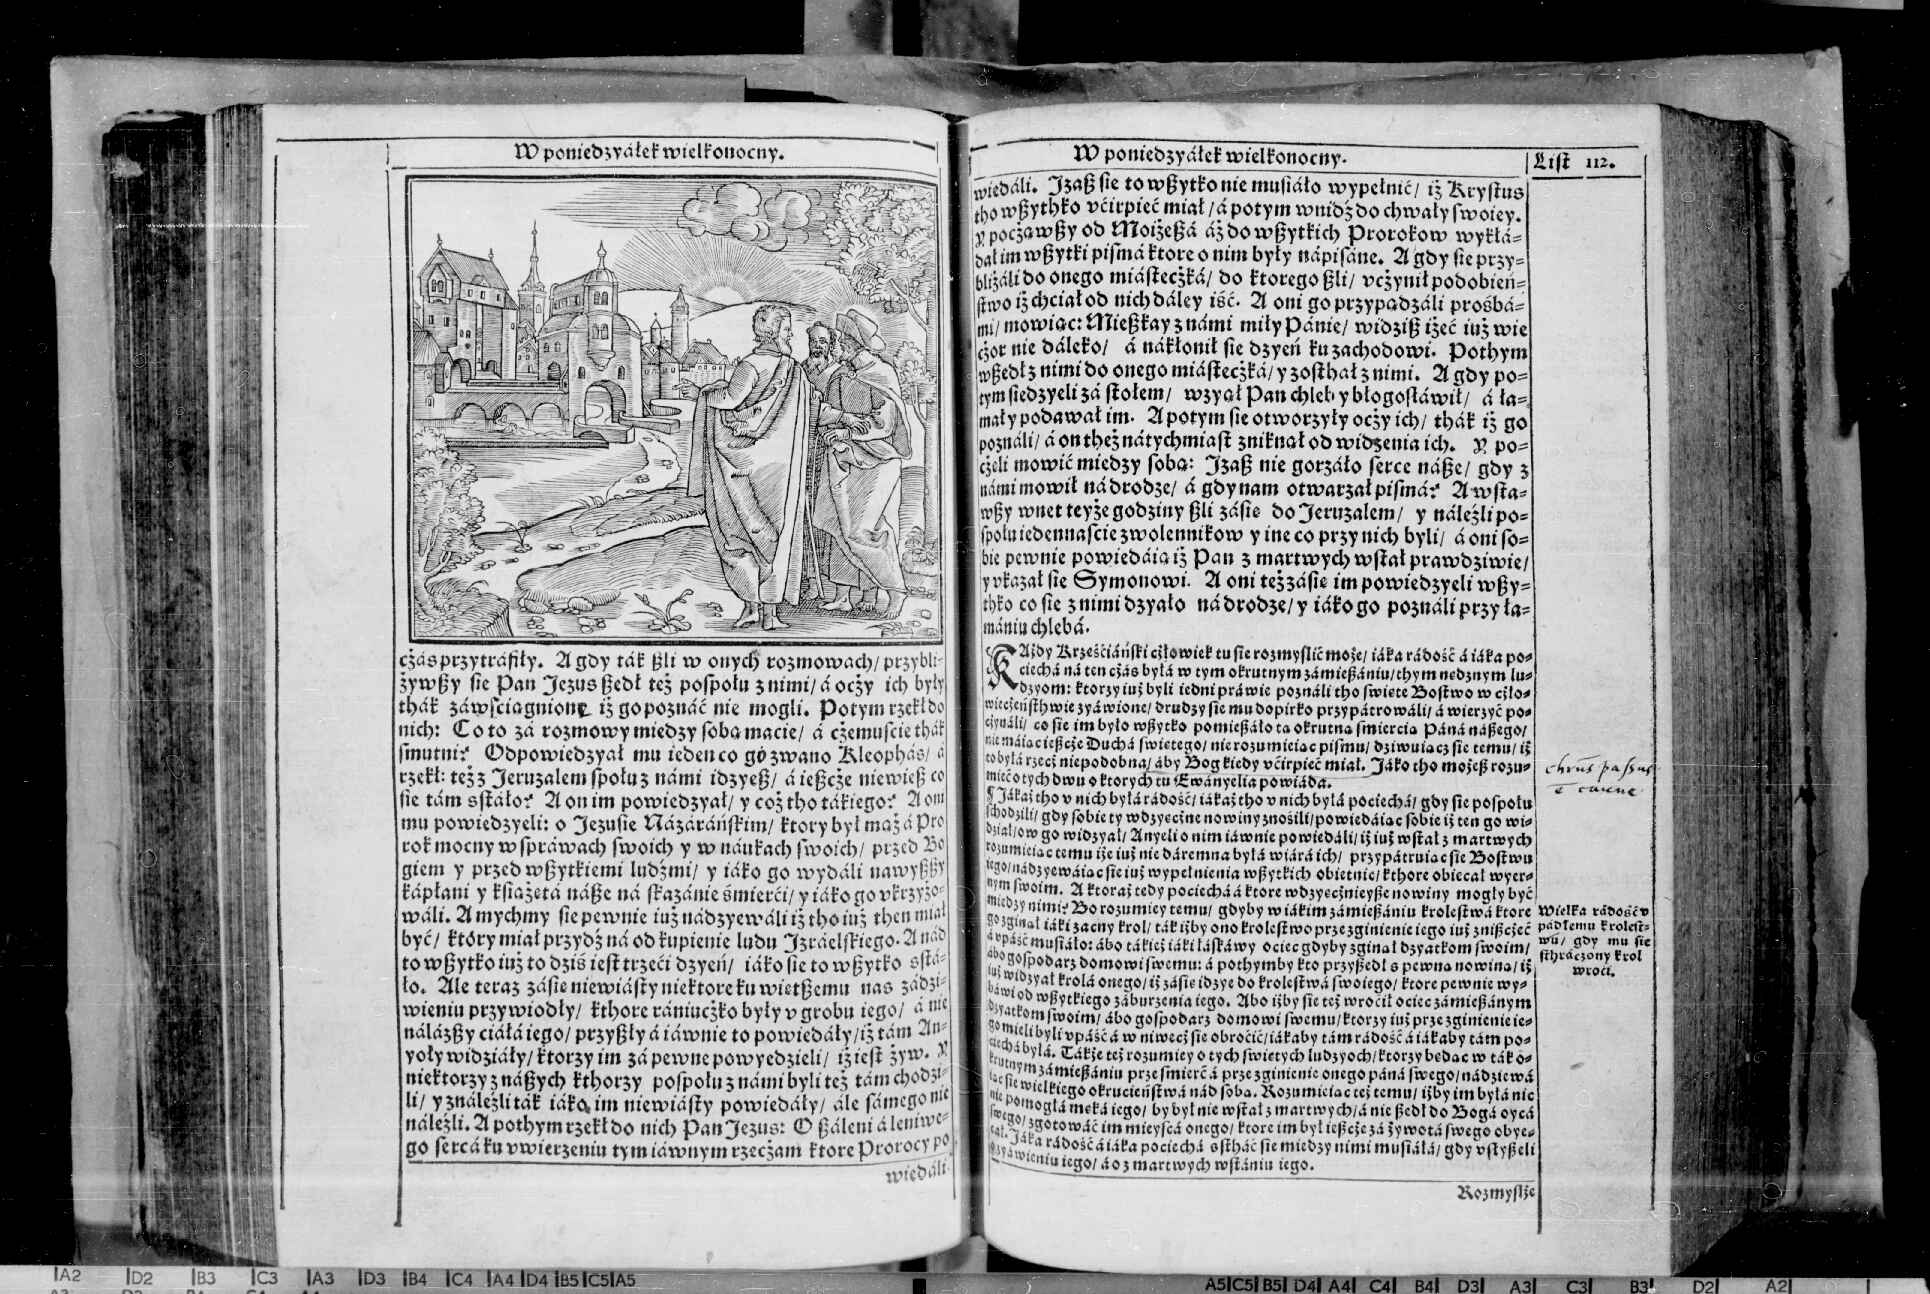 W poniedzyáłek wielkonocny.
cżás przytráfiły. A gdy ták ßli w onych rozmowach/ przybli-
żywßy sie Pan Jezus ßedł też pospołu z nimi/ á ocży ich były
thák záwsciągnione iż go poznáć nie mogli. Potym rzekł do
nich: Co to zá rozmowy miedzy sobą macie/ á cżemuscie thák
smutni? Odpowiedzyał mu ieden co go zwano Kleophás/ á
rzekł: też z Jeruzalem społu z námi idzyeß/ á ießcże niewieß co
sie tám sstáło? A on im powiedzyał/ y coż tho tákiego? A oni
mu powiedzyeli: o Jezusie Názáráńskim/ ktory był mąż á Pro
rok mocny w spráwach swoich y w náukach swoich/ przed Bo
giem y przed wßytkiemi ludźmi/ y iáko go wydáli nawyßßy
kápłani y książętá náße ná skazánie śmierći/ y iáko go vkrzyżo-
wáli. A mychmy sie pewnie iuż nádzyewáli iż tho iuż then miał
być/ który miał przydź ná odkupienie ludu Jzráelskiego. A nád
to wßytko iuż to dziś iest trzeći dzyeń/ iáko sie to wßytko sstá-
ło. Ale teraz zásie niewiásty niektore ku wietßemu nas zádzi-
wieniu przywiodły/ kthore rániucżko były v grobu iego/ á nie
nálazßy ciáłá iego/ przyßły á iáwnie to powiedáły/ iż tám An-
yoły widziáły/ ktorzy im zá pewne powyedzieli/ iż iest żyw. Y
niektorzy z náßych kthorzy pospołu z námi byli też tám chodzi-
li/ yználezli ták iáko im niewiásty powiedáły/ ále sámego nie
náleźli. A pothym rzekł do nich Pan Jezus: O ßáleni á leniwe-
go sercá ku vwierzeniu tym iáwnym rzecżam ktore Prorocy po
wiedáli.
W poniedzyáłek wielkonocny.
List 112.
wiedáli. Jzaß sie to wßytko nie musiáło wypełnić/ iż Krystus
tho wßythko vćirpieć miał/ á potym wnidź do chwały swoiey.
Y pocżąwßy od Moiżeßá áż do wßytkich Prorokow wykłá-
dał im wßytki pismá ktore o nim były nápisáne. A gdy sie przy-
bliżáli do onego miástecżká/ do ktorego ßli/ vcżynił podobień-
stwo iż chciał od nich dáley iść. A oni go przypądzáli prośbá-
mi/ mowiąc: Mießkay z námi miły Pánie/ widziß iżeć iuż wie
cżor nie dáleko/ á nákłonił sie dzyeń ku zachodowi. Pothym
wßedł z nimi do onego miástecżká/ y zosthał z nimi. A gdy po-
tym siedzyeli zá stołem/ wzyął Pan chleb y błogosłáwił/ á łá-
mał y podawał im. A potym sie otworzyły ocży ich/ thák iż go
poználi/ á on theż nátychmiast zniknął od widzenia ich. Y po-
cżeli mowić miedzy sobą: Jzaß nie gorzáło serce náße/ gdy z
námi mowił ná drodze/ á gdy nam otwarzał pismá? A wstá-
wßy wnet teyże godziny ßli zásie do Jeruzalem/ y náleźli po-
społu iedennascie zwolennikow y ine co przy nich byli/ á oni so-
bie pewnie powiedáią iż Pan z martwych wstał prawdziwie/
y vkazał sie Symonowi. A oni też zásie im powiedzyeli wßy-
thko co sie z nimi dzyało ná drodze/ y iáko go poználi przy łá-
mániu chlebá.
KAżdy Krześćiáński cżłowiek tu sie rozmyslić może/ iáka rádość á iáka po-
ciechá ná ten cżás byłá w tym okrutnym zámießániu/ thym nędznym lu-
dzyom: ktorzy iuż byli iedni práwie poználi tho święte Bostwo w cżło-
wiecżeństhwie zyáwione/ drudzy sie mu dopirko przypátrowáli/ á wierzyć po-
cżynáli/ co sie im było wßytko pomießáło tą okrutną śmiercią Páná náßego/
nie máiąc ießcże Duchá świętego/ nie rozumieiąc pismu/ dziwuiącz sie temu/ iż
to byłá rzecż niepodobna/ áby Bog kiedy vćirpieć miał. Jáko tho możeß rozu-
mieć o tych dwu o ktorych tu Ewányelia powiáda.
¶ Jákaż tho v nich byłá rádość/ iákaż tho v nich byłá pociechá/ gdy sie pospołu
schodzili/ gdy sobie ty wdzyęcżne nowiny znosili/ powiedáiąc sobie iż ten go wi-
dział/ ow go widzyał/ Anyeli o nim iáwnie powiedáli/ iż iuż wstał z martwych
rozumieiąc temu iże iuż nie dáremna byłá wiárá ich/ przypátruiąc sie Bostwu
iego/ nádzyewáiąc sie iuż wypełnienia wßytkich obietnic/ kthore obiecał wyer-
nym swoim. A ktoraż tedy pociechá á ktore wdzyęcżnieyße nowiny mogły być
miedzy nimi? Bo rozumiey temu/ gdyby w iákim zámießániu krolestwá ktore
go zginął iáki zacny krol/ ták iżby ono krolestwo prze zginienie iego iuż znißcżeć
á vpáść musiáło: ábo tákież iáki łáskáwy ociec gdyby zginął dzyatkom swoim/
ábo gospodarz domowi swemu: á pothymby kto przyßedł s pewną nowiną/ iż
iuż widzyał krolá onego/ iż zásie idzye do krolestwá swoiego/ ktore pewnie wy-
báwi od wßytkiego záburzenia iego. Abo iżby sie też wrocił ociec zámießánym
dzyatkom swoim/ ábo gospodarz domowi swemu/ ktorzy iuż prze zginienie ie-
go mieli byli vpáść á w niwecż sie obroćić/ iákaby tám rádość á iákaby tám po-
ciechá byłá. Tákże też rozumiey o tych świętych ludzyoch/ ktorzy będąc w ták o-
krutnym zámießániu prze śmierć á prze zginienie onego páná swego/ nádziewá
iąc sie wielkiego okrucieństwá nád sobą. Rozumieiąc też temu/ iżby im byłá nic
nie pomogłá męká iego/ by był nie wstał z martwych/ á nie ßedł do Bogá oycá
swego/ zgotowáć im mieyscá onego/ ktore im był ießcże zá żywotá swego obye-
cał. Jáka rádość á iáka pociechá ssthać sie miedzy nimi musiáłá/ gdy vslyßeli
o zyáwieniu iego/ á o z martwych wstániu iego.
Rozmyslże
Wielka rádość v
pádłemu krolest-
wu/ gdy mu sie
sthrácżony krol
wroci.